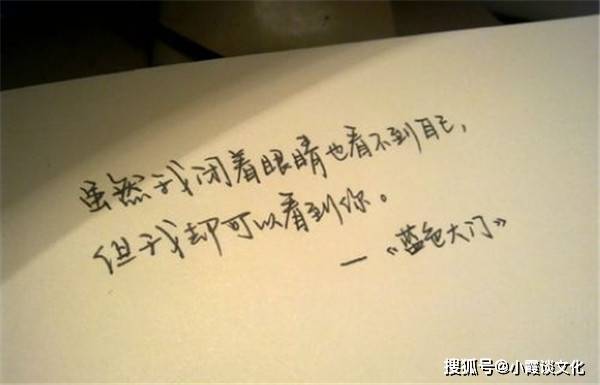 虽然我闭着眼睛也看不到自己，
但我却可以看到你。
—《蓝色大门》
搜狐号@小霞谈文化